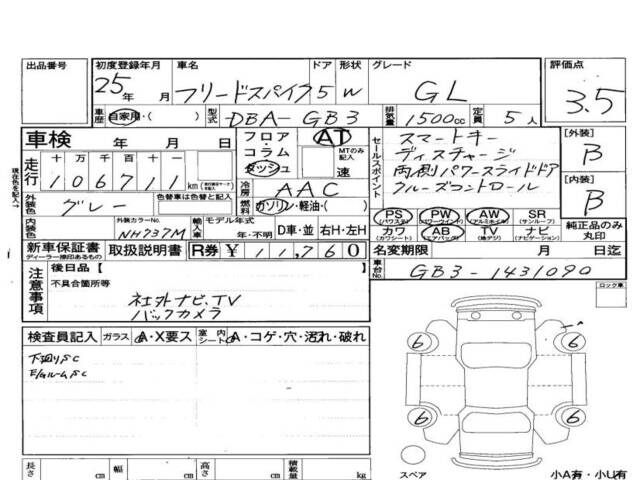 出品番号 初度登録年月 車名 ドア 形状 グレード 評価点
25年 月 フリードスパイク 5 W GL 3.5
車歴 自家用・( ) 型式 DBA-GB3 排気量 1500cc 定員 5人
車検 年 月 日 フロア・コラム AT MTのみ記入 セールスポイント スマートキー [外装]
現在色を記入→ 走行 十万千百十一 ダッシュ 速 ディスチャージ B
106711 km 両側パワースライドドア
冷房 AAC クルーズコントロール [内装]
外装色 グレー 色替車は色替と記入 燃料 ガソリン・軽油・( ) B
PS (パワステ) PW (パワーウインド) AW (アルミホイール) SR (サンルーフ) 純正品のみ丸印
内装色 外装カラーNo. NH737M 輸入車 モデル年式 年・不明 D車・並 右H・左H カワ (カワシート) AB (エアバッグ) TV (地デジ) ナビ (ナビゲーション)
新車保証書 ディーラー捺印あるもの 取扱説明書 R券 ¥11,760 名変期限 月 日迄
注意事項 後日品【 】 車台No. GB3-1431090
不具合箇所等 ロック車
社外ナビ、TV
バックカメラ
検査員記入 ガラス A・X要ス 室内シート A・コゲ・穴・汚れ・破れ
下廻りSC
E/GルームSC
6 6
6 6
スペア
小A有・小U有
長さ cm 幅 cm 高さ cm 積載量 kg